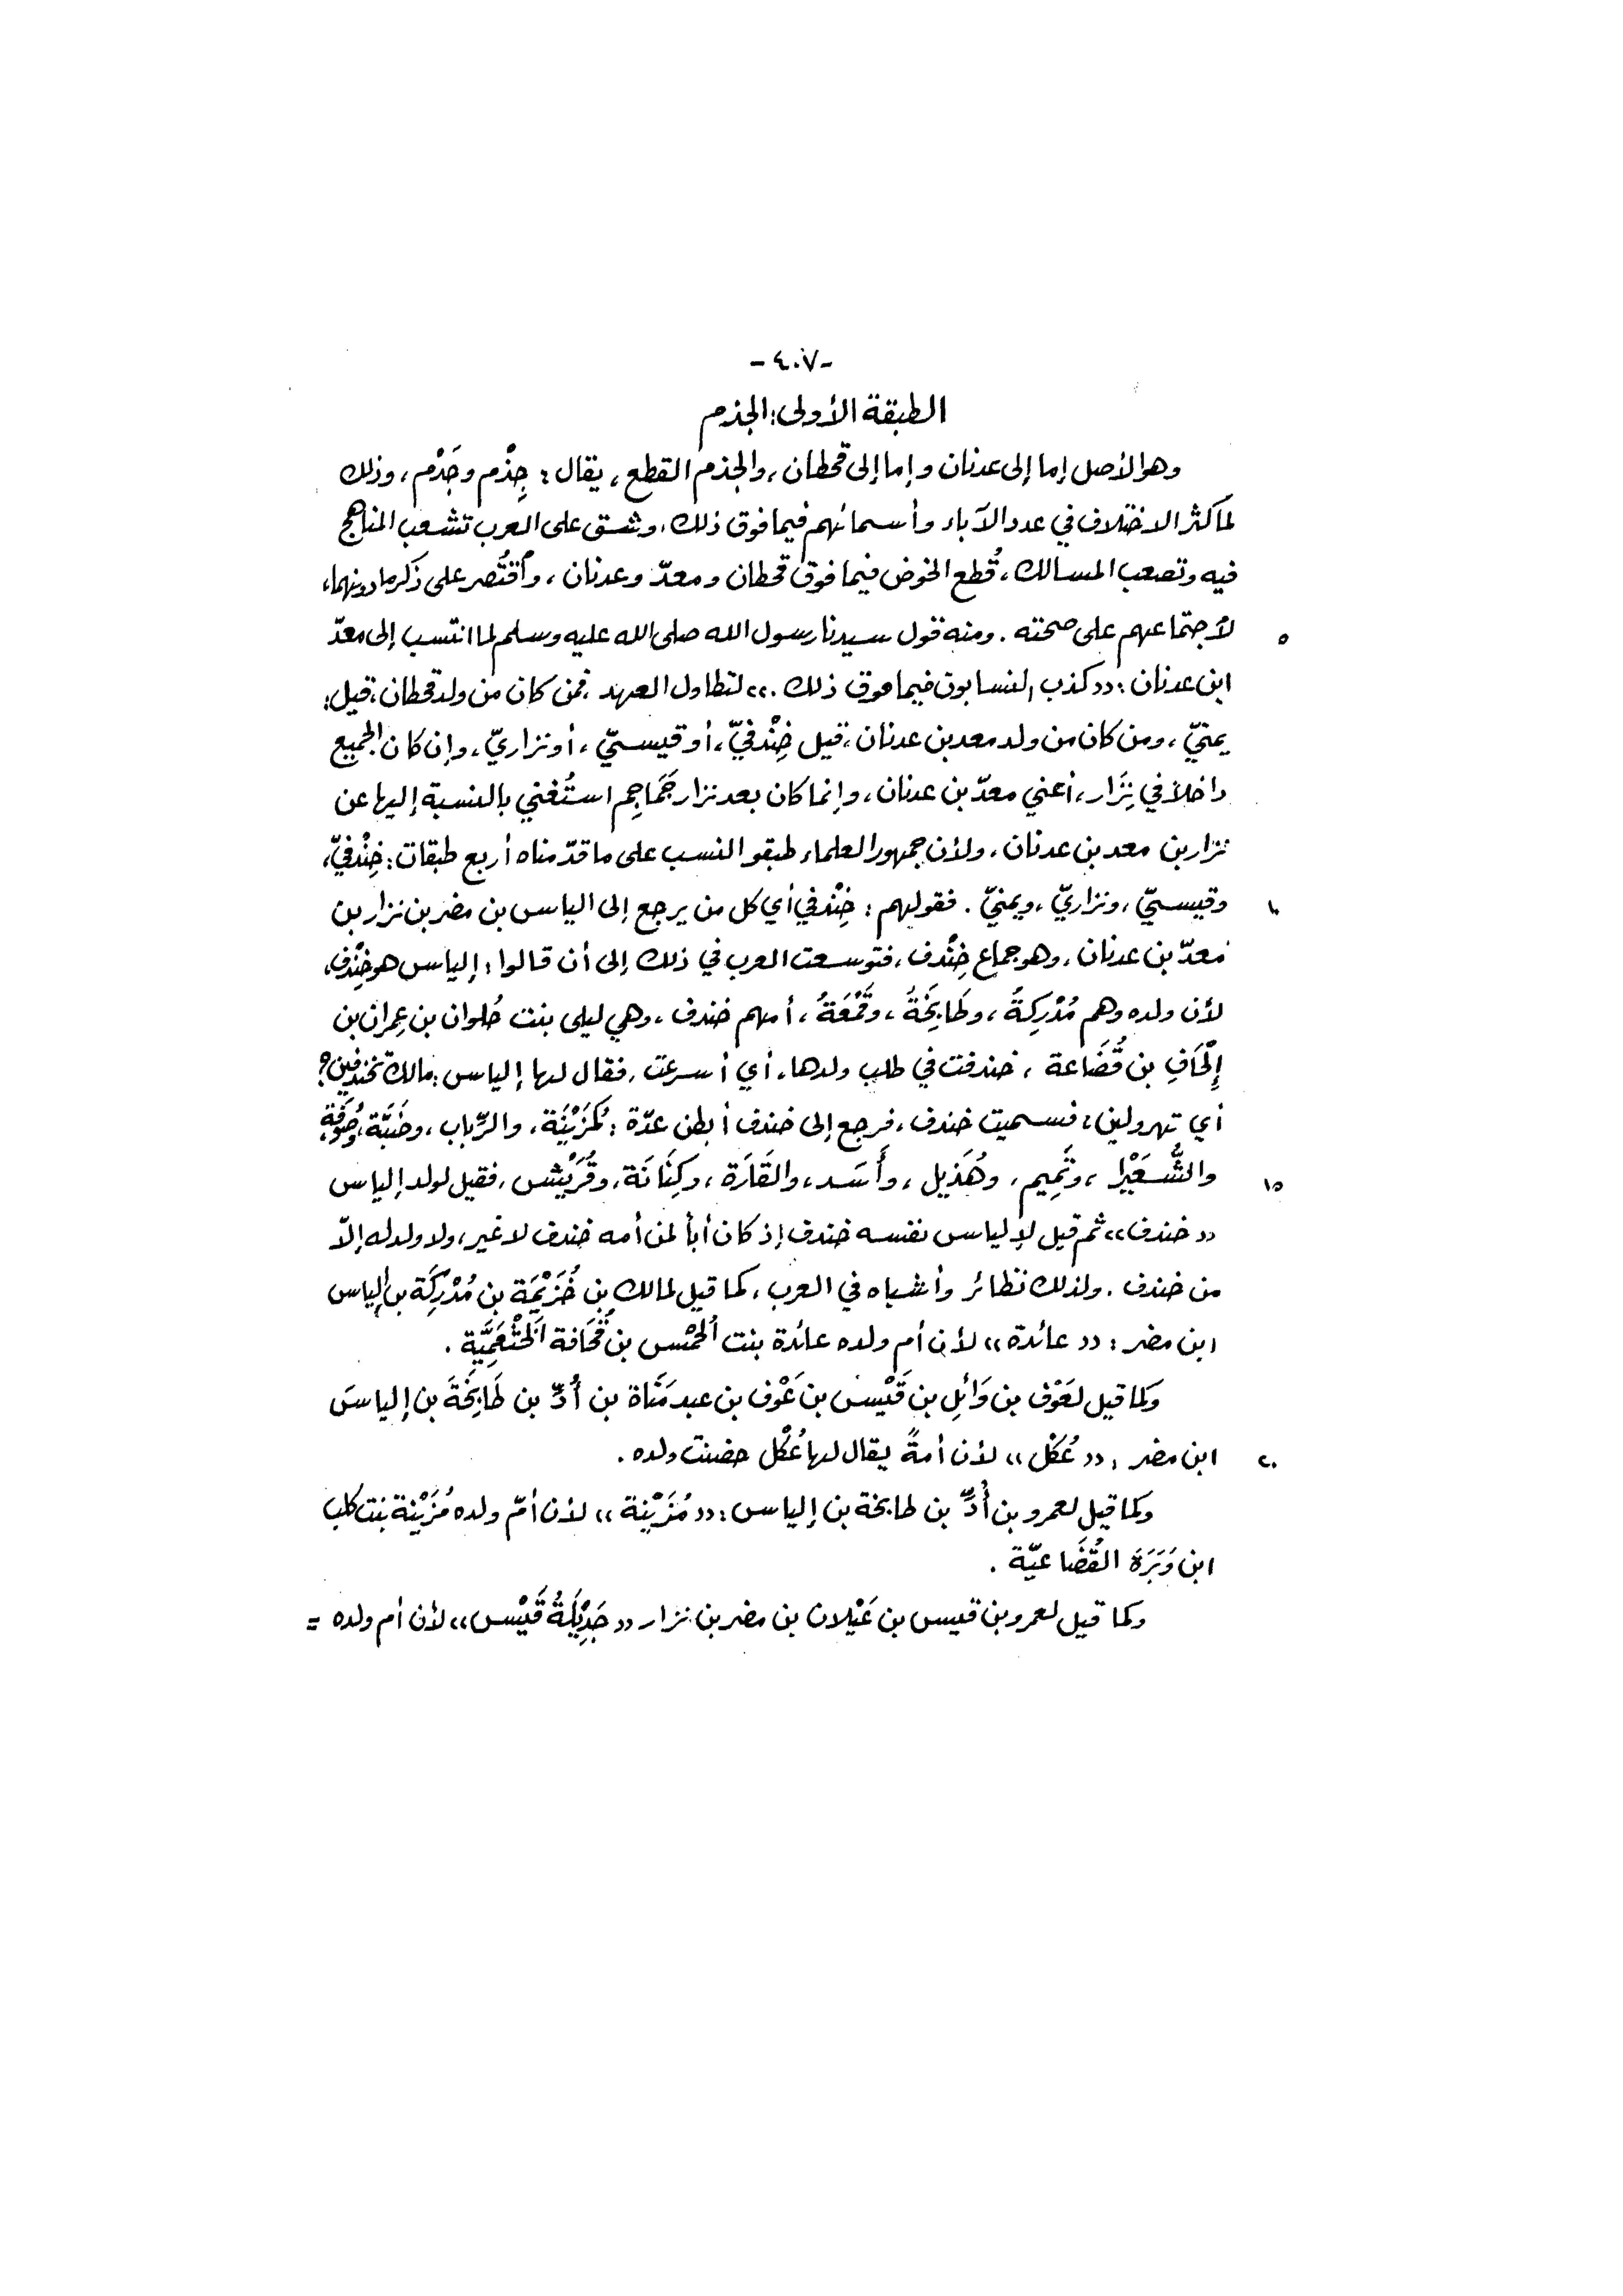 -٤٠٧-
الطبقة الأولى: الجذم
وهو الأصل إما إلى عدنان وإما إلى قحطان، والجذم القطع، يقال: جِذْم وجَذْم، وذلك
لما كثر الاختلاف في عدد الآباء وأسمائهم فيما فوق ذلك، وشق على العرب تشعب المناهج
فيه وتصعب المسالك، قُطع الخوض فيما فوق قحطان ومعدّ وعدنان، وأقتُصر على ذكر ما دونهما،
٥ لأجتماعهم على صحته. ومنه قول سيدنا رسول الله صلى الله عليه وسلم لما انتسب إلى معدّ
ابن عدنان: «كذب النسابون فيما فوق ذلك.» لتطاول العهد، فمن كان من ولد قحطان، قيل:
يمنيّ، ومن كان من ولد معد بن عدنان، قيل خِنْدفيّ، أو قيسيّ، أو نزاريّ، وإن كان الجميع
داخلاً في نِزَار، أعني معدّ بن عدنان، وإنما كان بعد نزار جَمَاجِم استُغني بالنسبة إليها عن
نزار بن معد بن عدنان، ولأن جمهور العلماء طبقوا النسب على ما قدّمناه أربع طبقات: خِنْدفيّ،
١٠ وقيسيّ، ونزاريّ، ويمنيّ. فقولهم: خِنْدفي أي كل من يرجع إلى الياس بن مضر بن نزار بن
معدّ بن عدنان، وهو جماع خِنْدف، فتوسعت العرب في ذلك إلى أن قالوا: إلياس هو خِنْدف،
لأن ولده وهم مُدْرِكةُ، وطَابِخَةُ، وقَمْعَةُ، أمهم خندف، وهي ليلى بنت حُلوان بن عِمران بن
إلْحَافِ بن قُضَاعة، خندفت في طلب ولدها، أي أسرعت، فقال لها إلياس: مالك تخندفين؟
أي تهرولين، فسميت خندف، فرجع إلى خندف أبطن عدّة: كمُزَيْنَة، والرّباب، وضَبَّة، وصُوفَة،
١٥ والشُّعَيْرا، وتَمِيم، وهُذَيل، وأَسَد، والقَارَة، وكِنَانَة، وقُرَيْش، فقيل لولد إلياس
«خندف» ثم قيل لإلياس نفسه خندف إذ كان أباً لمن أمه خندف لا غير، ولا ولد له إلاّ
من خندف. ولذلك نظائر وأشباه في العرب، كما قيل لمالك بن خُزَيْمَة بن مُدْرِكَة بن إلياس
ابن مضر: «عائدة» لأن أم ولده عائدة بنت الخِمْس بن قُحَافة الخَثْعَمِيَّة.
وكما قيل لعَوْف بن وَائِل بن قَيْس بن عَوْف بن عبد مَنَاة بن أُدِّ بن طَابِخَةَ بن إلياسَ
٢٠ ابن مضر: «عُكْل» لأن أمةً يقال لها عُكْل حضنت ولده.
وكما قيل لعمرو بن أُدِّ بن طابخة بن إلياس: «مُزَيْنة» لأن أمّ ولده مُزَيْنة بنت كلب
ابن وَبَرَةَ القُضَاعيّة.
وكما قيل لعمرو بن قيس بن عَيْلان بن مضر بن نزار «جَدِيْلَةُ قَيْس» لأن أم ولده =